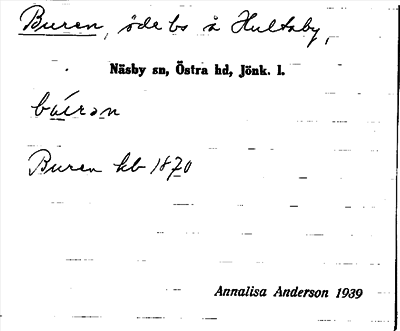 Buren, öde bs å Hultaby,
Näsby sn, Östra hd, Jönk. l.
búirən
Buren kb 1870
Annalisa Anderson 1939